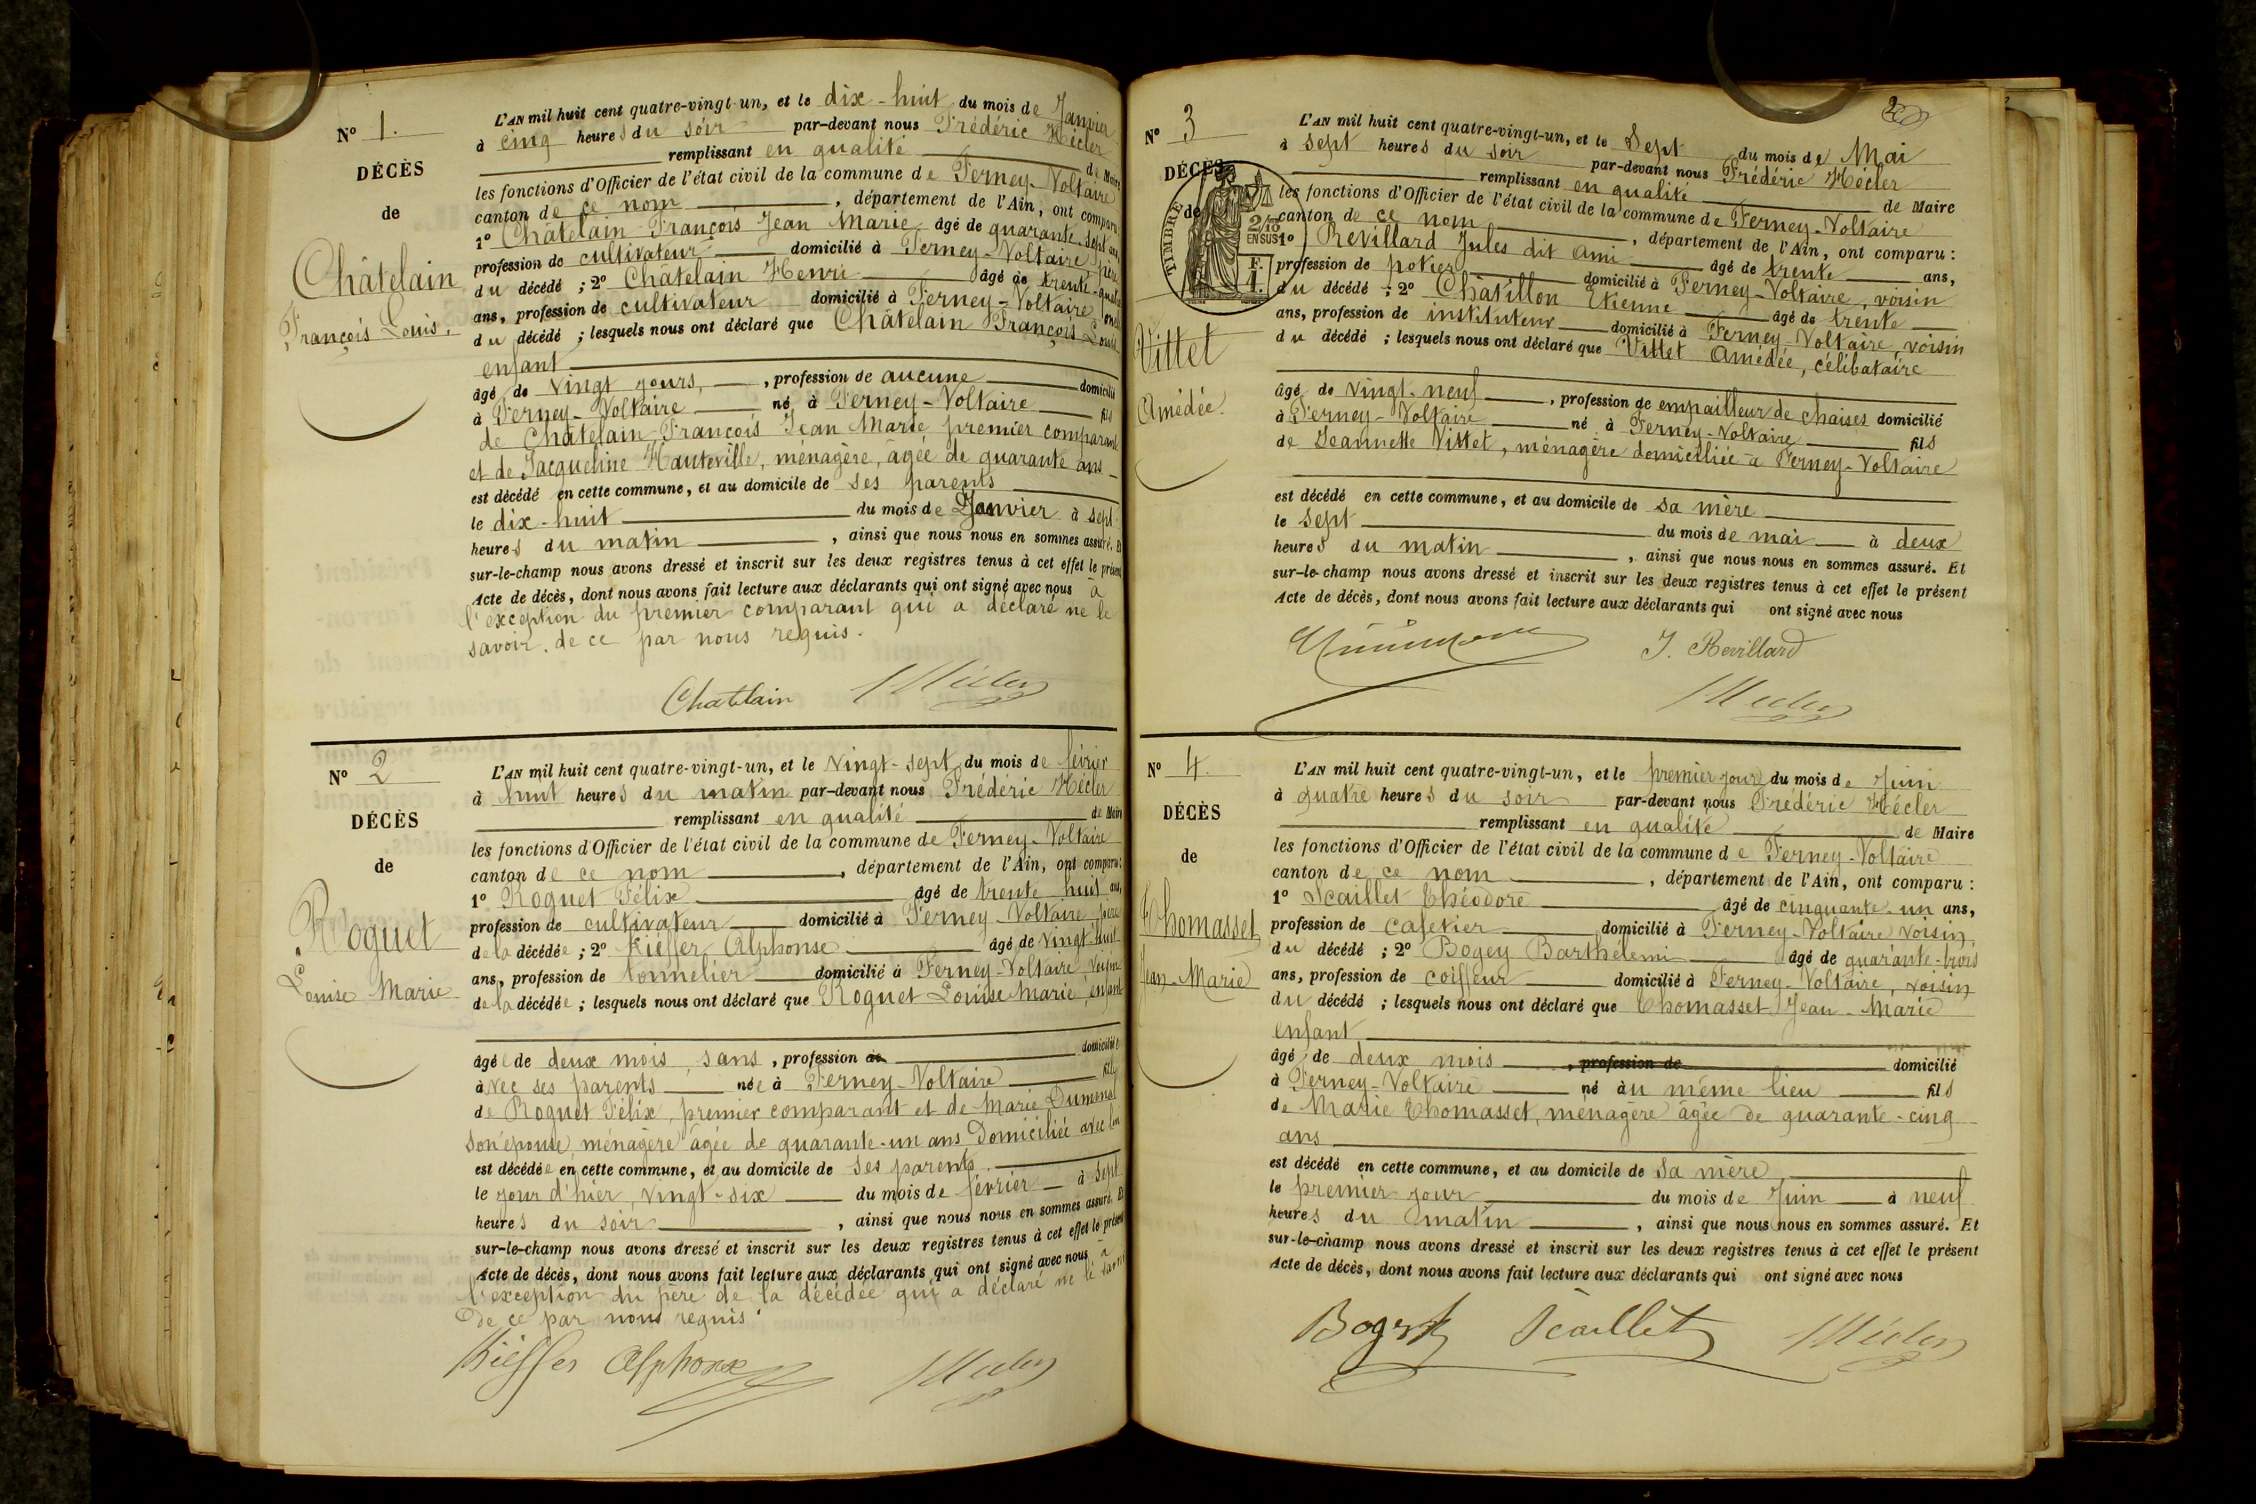 N° 1.
DÉCÈS
de
Châtelain
François Louis.
L'AN mil huit cent quatre-vingt-un, et le dix-huit du mois de Janvier
à cinq heures du soir par-devant nous Frédéric Hécler
remplissant en qualité de Maire
les fonctions d'Officier de l'état civil de la commune de Ferney-Voltaire
canton de ce nom, département de l'Ain, ont comparu
1° Châtelain François Jean Marie âgé de quarante-sept ans
profession de cultivateur domicilié à Ferney-Voltaire père
du décédé ; 2° Châtelain Henri âgé de trente-quatre
ans, profession de cultivateur domicilié à Ferney-Voltaire oncle
du décédé ; lesquels nous ont déclaré que Châtelain François Louis
enfant
âgé de vingt jours, profession de aucune domicilié
à Ferney-Voltaire né à Ferney-Voltaire fils
de Châtelain François Jean Marie premier comparant
et de Jacqueline Hauteville, ménagère, âgée de quarante ans
est décédé en cette commune, et au domicile de ses parents
le dix-huit du mois de Janvier à sept
heures du matin, ainsi que nous nous en sommes assuré. Et
sur-le-champ nous avons dressé et inscrit sur les deux registres tenus à cet effet le présent
Acte de décès, dont nous avons fait lecture aux déclarants qui ont signé avec nous à
l'exception du premier comparant qui a déclaré ne le
savoir. de ce par nous requis.
Chatelain Hécler
N° 2
DÉCÈS
de
Roguet
Louise Marie
L'AN mil huit cent quatre-vingt-un, et le vingt-sept du mois de février
à huit heures du matin par-devant nous Frédéric Hécler
remplissant en qualité de Maire
les fonctions d'Officier de l'état civil de la commune de Ferney-Voltaire
canton de ce nom, département de l'Ain, ont comparu :
1° Roguet Félix âgé de trente huit ans,
profession de cultivateur domicilié à Ferney-Voltaire, père
de la décédée ; 2° Kieffer Alphonse âgé de vingt-huit
ans, profession de tonnelier domicilié à Ferney-Voltaire, voisin
de la décédée ; lesquels nous ont déclaré que Roguet Louise Marie, enfant
âgée de deux mois, sans, profession de domiciliée
avec ses parents née à Ferney-Voltaire fille
de Roguet Félix, premier comparant et de Marie Dumonal
son épouse, ménagère âgée de quarante-un ans Domiciliée avec lui
est décédée en cette commune, et au domicile de ses parents
le jour d'hier, vingt-six du mois de février à sept
heures du soir, ainsi que nous nous en sommes assuré. Et
sur-le-champ nous avons dressé et inscrit sur les deux registres tenus à cet effet le présent
Acte de décès, dont nous avons fait lecture aux déclarants qui ont signé avec nous à
l'exception du père de la décédée qui a déclaré ne le savoir
de ce par nous requis.
Kieffer Alphonse Hécler
2
N° 3
DÉCÈS
de
TIMBRE
2/10
EN SUS
F.
1.
Vittet
Amédée.
L'AN mil huit cent quatre-vingt-un, et le Sept du mois de Mai
à sept heures du soir par-devant nous Frédéric Hécler
remplissant en qualité de Maire
les fonctions d'Officier de l'état civil de la commune de Ferney-Voltaire
canton de ce nom, département de l'Ain, ont comparu :
1° Revillard Jules dit Ami âgé de trente ans,
profession de potier domicilié à Ferney-Voltaire, voisin
du décédé ; 2° Châtillon Etienne âgé de trente
ans, profession de instituteur domicilié à Ferney-Voltaire, voisin
du décédé ; lesquels nous ont déclaré que Vittet Amédée, célibataire
âgé de vingt-neuf, profession de empailleur de chaises domicilié
à Ferney-Voltaire né à Ferney-Voltaire fils
de Jeannette Vittet, ménagère domiciliée à Ferney-Voltaire
est décédé en cette commune, et au domicile de sa mère
le sept du mois de mai à deux
heures du matin, ainsi que nous nous en sommes assuré. Et
sur-le-champ nous avons dressé et inscrit sur les deux registres tenus à cet effet le présent
Acte de décès, dont nous avons fait lecture aux déclarants qui ont signé avec nous
J. Revillard
Hécler
N° 4.
DÉCÈS
de
Thomasset
Jean-Marie
L'AN mil huit cent quatre-vingt-un, et le premier jour du mois de Juin
à quatre heures du soir par-devant nous Frédéric Hécler
remplissant en qualité de Maire
les fonctions d'Officier de l'état civil de la commune de Ferney-Voltaire
canton de ce nom, département de l'Ain, ont comparu :
1° Scaillet Théodore âgé de cinquante-un ans,
profession de cafetier domicilié à Ferney-Voltaire voisin
du décédé ; 2° Bogey Barthélemi âgé de quarante-trois
ans, profession de coiffeur domicilié à Ferney-Voltaire, voisin
du décédé ; lesquels nous ont déclaré que Thomasset Jean-Marie
enfant
âgé de deux mois, profession de domicilié
à Ferney-Voltaire né au même lieu fils
de Marie Thomasset, ménagère âgée de quarante-cinq
ans
est décédé en cette commune, et au domicile de sa mère
le premier jour du mois de Juin à neuf
heures du matin, ainsi que nous nous en sommes assuré. Et
sur-le-champ nous avons dressé et inscrit sur les deux registres tenus à cet effet le présent
Acte de décès, dont nous avons fait lecture aux déclarants qui ont signé avec nous
Bogey Scaillet Hécler